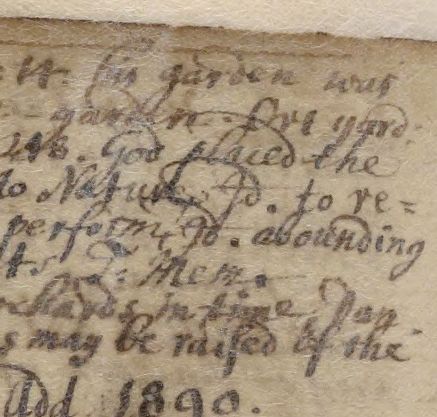 his garden was
garden. Ort yard.
God placed the
to Nature, Jd. to re=
perform, Jd. abounding
ts. T: Mem.
rchards in time Pag
s may be raised of the
Add 1890.